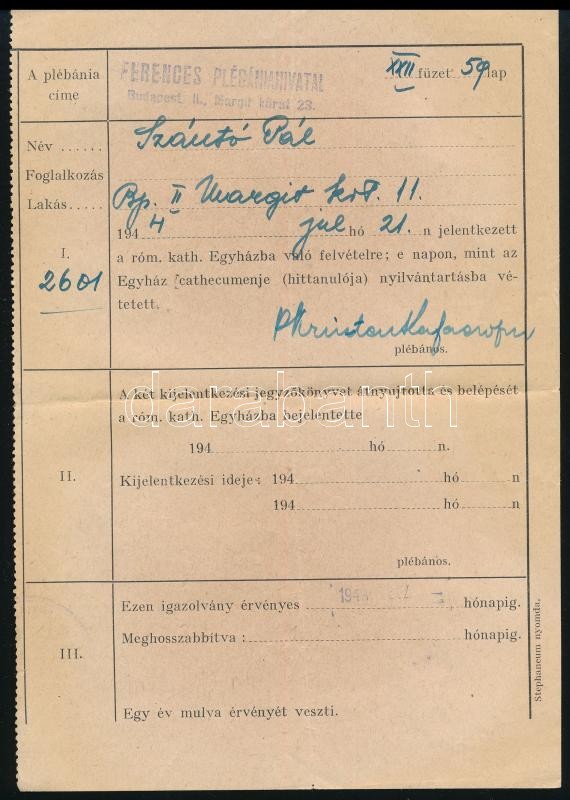 A plébánia címe
FERENCES PLÉBÁNIAHIVATAL
Budapest, II., Margit körút 23.
XXIII füzet 59 lap
Név ...... Szántó Pál
Foglalkozás
Lakás ..... Bp. II Margit krt. 11.
I.
2601
194 4 júl hó 21. n jelentkezett
a róm. kath. Egyházba való felvételre; e napon, mint az
Egyház cathecumenje (hittanulója) nyilvántartásba vé-
tetett.
plébános.
II.
A két kijelentkezési jegyzőkönyvet átnyujtotta és belépését
a róm. kath. Egyházba bejelentette
194 hó n.
Kijelentkezési ideje: 194 hó n
194 hó n
plébános.
III.
Ezen igazolvány érvényes hónapig.
Meghosszabbítva: hónapig.
Egy év mulva érvényét veszti.
Stephaneum nyomda.
darabanth